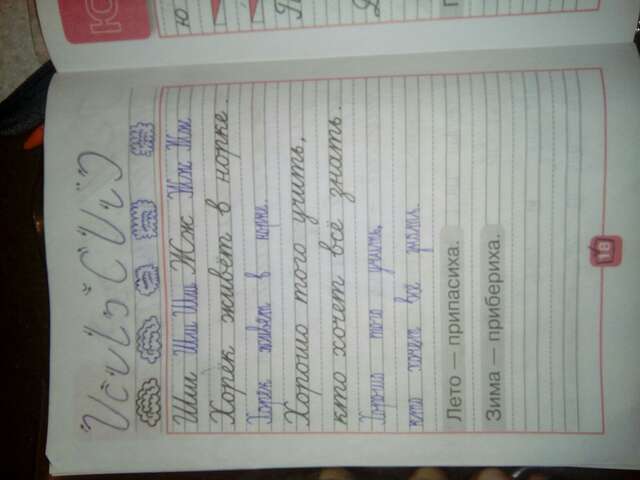 Шш Шш Шш Жж Жж Жж
Хорёк живёт в норке.
Хорёк живёт в норке.
Хорошо того учить,
кто хочет всё знать.
Хорошо того учить,
кто хочет всё знать.
Лето — припасиха.
Зима — прибериха.
18